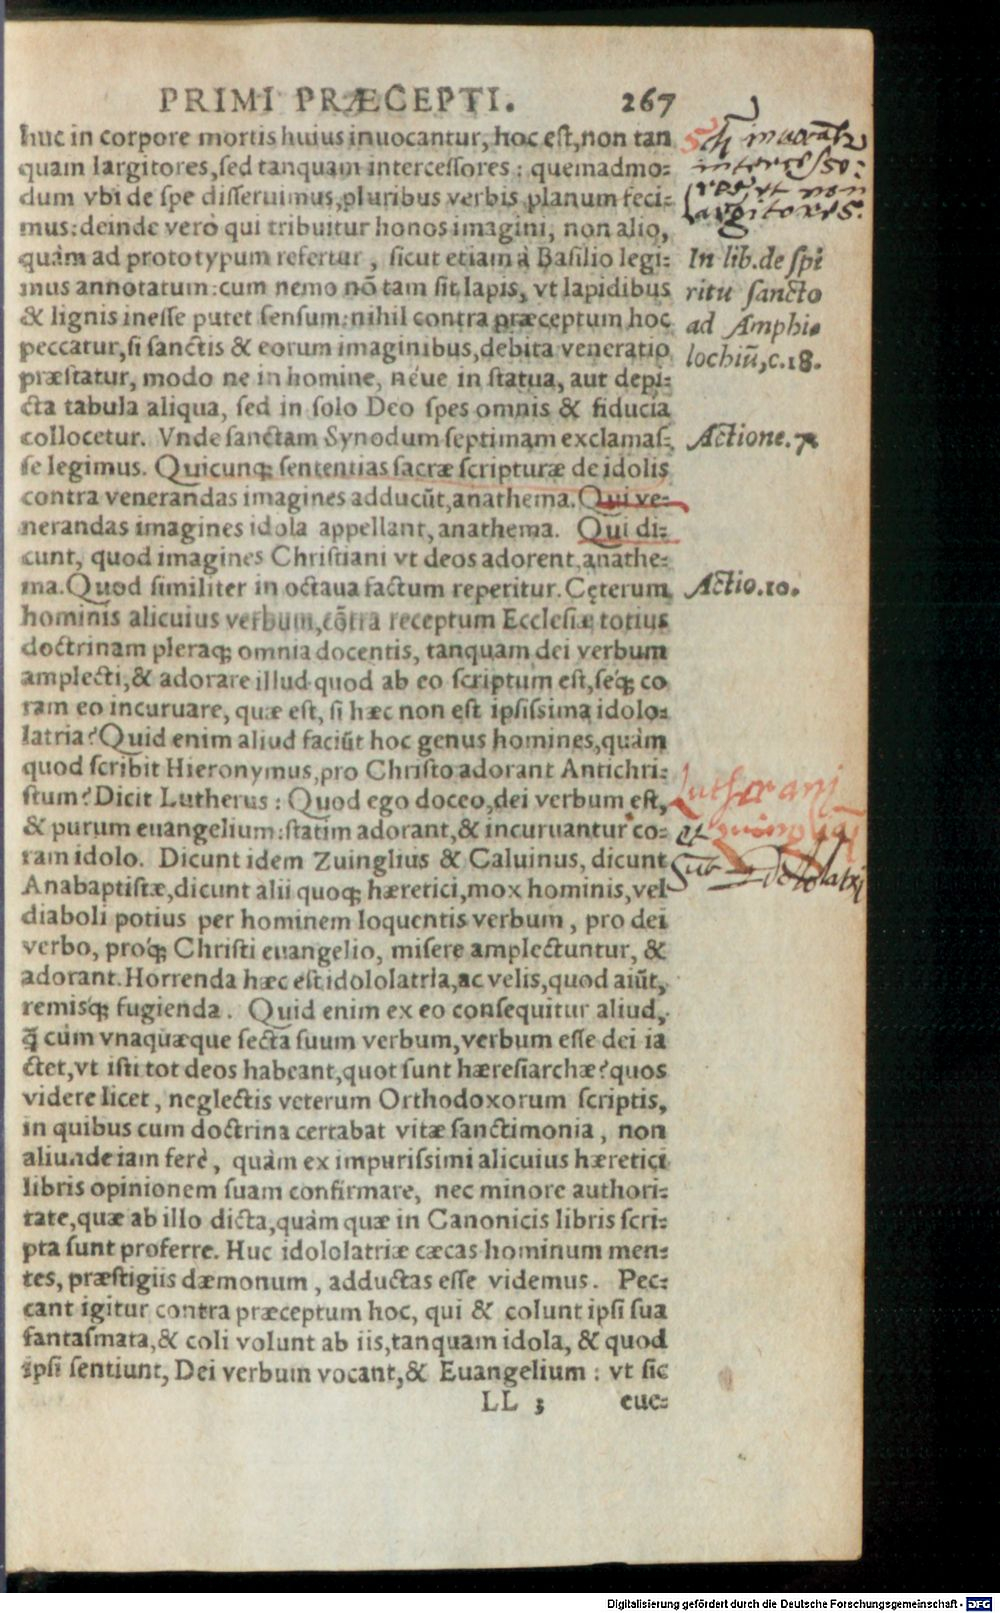 PRIMI PRÆCEPTI. 267
huc in corpore mortis huius inuocantur, hoc est, non tan
quam largitores, sed tanquam intercessores: quemadmo-
dum vbi de spe disseruimus, pluribus verbis planum feci-
mus: deinde verò qui tribuitur honos imagini, non alio,
quàm ad prototypum refertur, sicut etiam à Basilio legi-
mus annotatum: cum nemo nõ tam sit lapis, vt lapidibus
& lignis inesse putet sensum: nihil contra præceptum hoc
peccatur, si sanctis & eorum imaginibus, debita veneratio
præstatur, modo ne in homine, néue in statua, aut depi-
cta tabula aliqua, sed in solo Deo spes omnis & fiducia
collocetur. Vnde sanctam Synodum septimam exclamas-
se legimus. Quicunq; sententias sacræ scripturæ de idolis
contra venerandas imagines adducũt, anathema. Qui ve-
nerandas imagines idola appellant, anathema. Qui di-
cunt, quod imagines Christiani vt deos adorent, anathe-
ma. Quod similiter in octaua factum reperitur. Cęterum
hominis alicuius verbum, cõtra receptum Ecclesiæ totius
doctrinam pleraq; omnia docentis, tanquam dei verbum
amplecti, & adorare illud quod ab eo scriptum est, seq́; co
ram eo incuruare, quæ est, si hæc non est ipsissima idolo-
latria? Quid enim aliud faciũt hoc genus homines, quàm
quod scribit Hieronymus, pro Christo adorant Antichri-
stum? Dicit Lutherus: Quod ego doceo, dei verbum est,
& purum euangelium: statim adorant, & incuruantur co-
ram idolo. Dicunt idem Zuinglius & Caluinus, dicunt
Anabaptistæ, dicunt alii quoq; hæretici, mox hominis, vel
diaboli potius per hominem loquentis verbum, pro dei
verbo, proq́; Christi euangelio, misere amplectuntur, &
adorant. Horrenda hæc est idololatria, ac velis, quod aiũt,
remisq́; fugienda. Quid enim ex eo consequitur aliud,
q̃ cùm vnaquæque secta suum verbum, verbum esse dei ia
ctet, vt isti tot deos habeant, quot sunt hæresiarchæ? quos
videre licet, neglectis veterum Orthodoxorum scriptis,
in quibus cum doctrina certabat vitæ sanctimonia, non
aliunde iam ferè, quàm ex impurissimi alicuius hæretici
libris opinionem suam confirmare, nec minore authori-
tate, quæ ab illo dicta, quàm quæ in Canonicis libris scri-
pta sunt proferre. Huc idololatriæ cæcas hominum men-
tes, præstigiis dæmonum, adductas esse videmus. Pec-
cant igitur contra præceptum hoc, qui & colunt ipsi sua
fantasmata, & coli volunt ab iis, tanquam idola, & quod
ipsi sentiunt, Dei verbum vocant, & Euangelium: vt sic
LL 3 eue-
intercesso-
res et non
largitores.
In lib. de spi
ritu sancto
ad Amphi-
lochiũ, c. 18.
Actione. 7
Actio. 10.
Lutherani
et
sunt Idololatrę
Digitalisierung gefördert durch die Deutsche Forschungsgemeinschaft - DFG